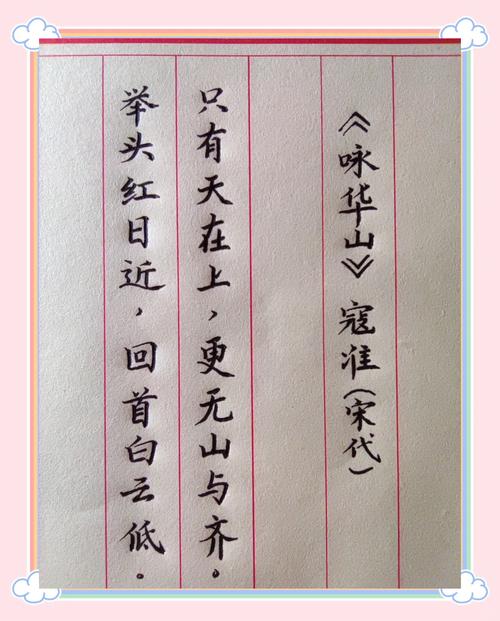 《咏华山》寇准(宋代)
只有天在上，更无山与齐。
举头红日近，回首白云低。